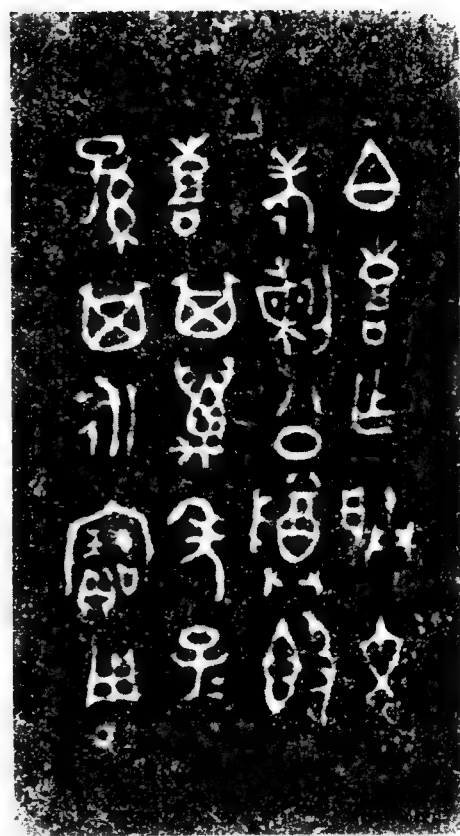 白喜乍朕文
考剌公尊𣪘
喜其萬年子=
孫其永寶用